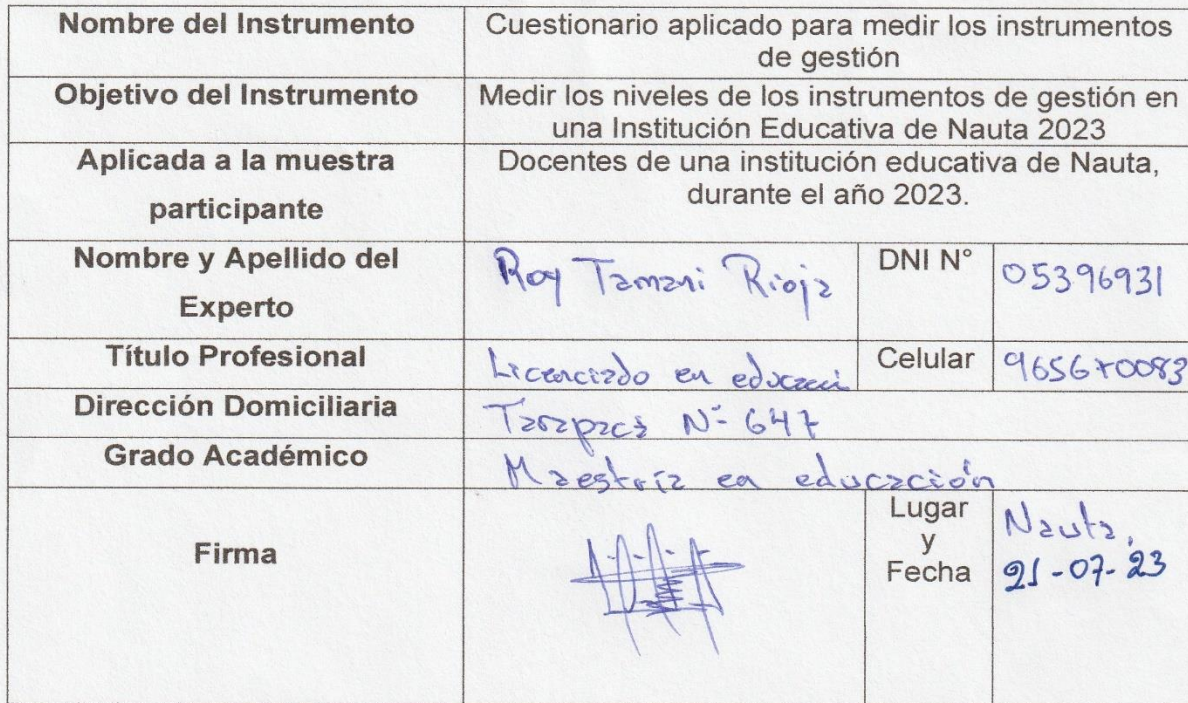 Nombre del Instrumento
Cuestionario aplicado para medir los instrumentos
de gestión
Objetivo del Instrumento
Medir los niveles de los instrumentos de gestión en
una Institución Educativa de Nauta 2023
Aplicada a la muestra
participante
Docentes de una institución educativa de Nauta,
durante el año 2023.
Nombre y Apellido del
Experto
Roy Tamani Rioja
DNI N°
05396931
Título Profesional
Licenciado en educaci
Celular
965670083
Dirección Domiciliaria
Tarapacá Nº 647
Grado Académico
Maestría en educación
Firma
Lugar
y
Fecha
Nauta,
21-07-23